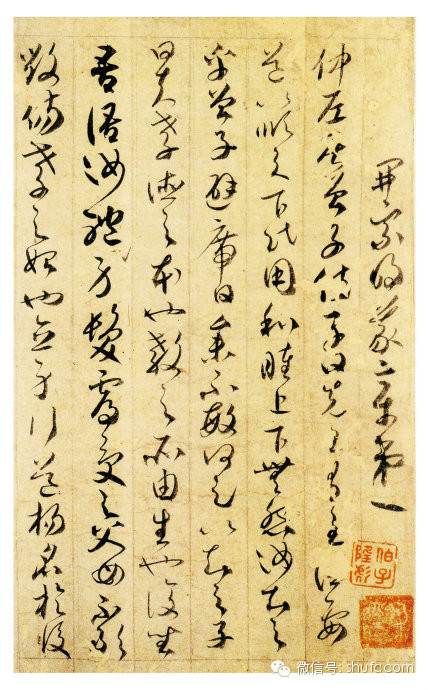 開宗明義章第一
仲尼居曾子侍子曰先王有至德要
道以順天下民用和睦上下無怨汝知之
乎曾子避席曰參不敏何足以知之子
曰夫孝德之本也教之所由生也復坐
吾語汝身體髮膚受之父母不敢
毀傷孝之始也立身行道揚名於後
微信号: shufccom